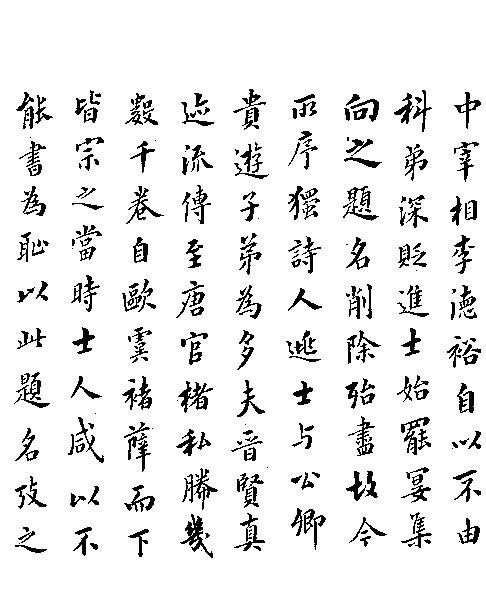 中宰相李德裕自以不由
科弟深貶進士始罷宴集
向之題名削除殆盡故今
所序獨詩人逰士与公卿
貴遊子弟為多夫晋賢真
迹流傳至唐官楮私勝幾
數千卷自歐虞褚薛而下
皆宗之當時士人咸以不
能書為恥以此題名攷之